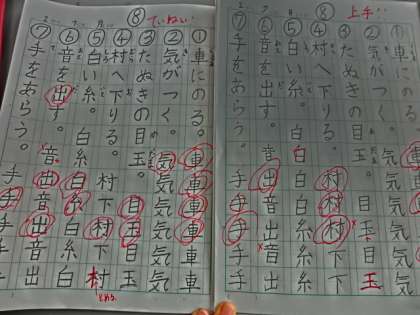 ⑧
上手!!
①車にのる。車車車車車
②気がつく。気気気気気気
③たぬきの目玉。目玉目玉
④村へ下りる。村村村下下
⑤白い糸。白白
⑥音を出す。音出音出音出
⑦手をあらう。手手手手手
⑧
ていねい!
①車にのる。車車車車車
②気がつく。気気気気気気
③たぬきの目玉。目玉目玉
④村へ下りる。村下村下村
とめる
⑤白い糸。白糸白糸白糸白
⑥音を出す。音出音出音出
⑦手をあらう。手手手手手